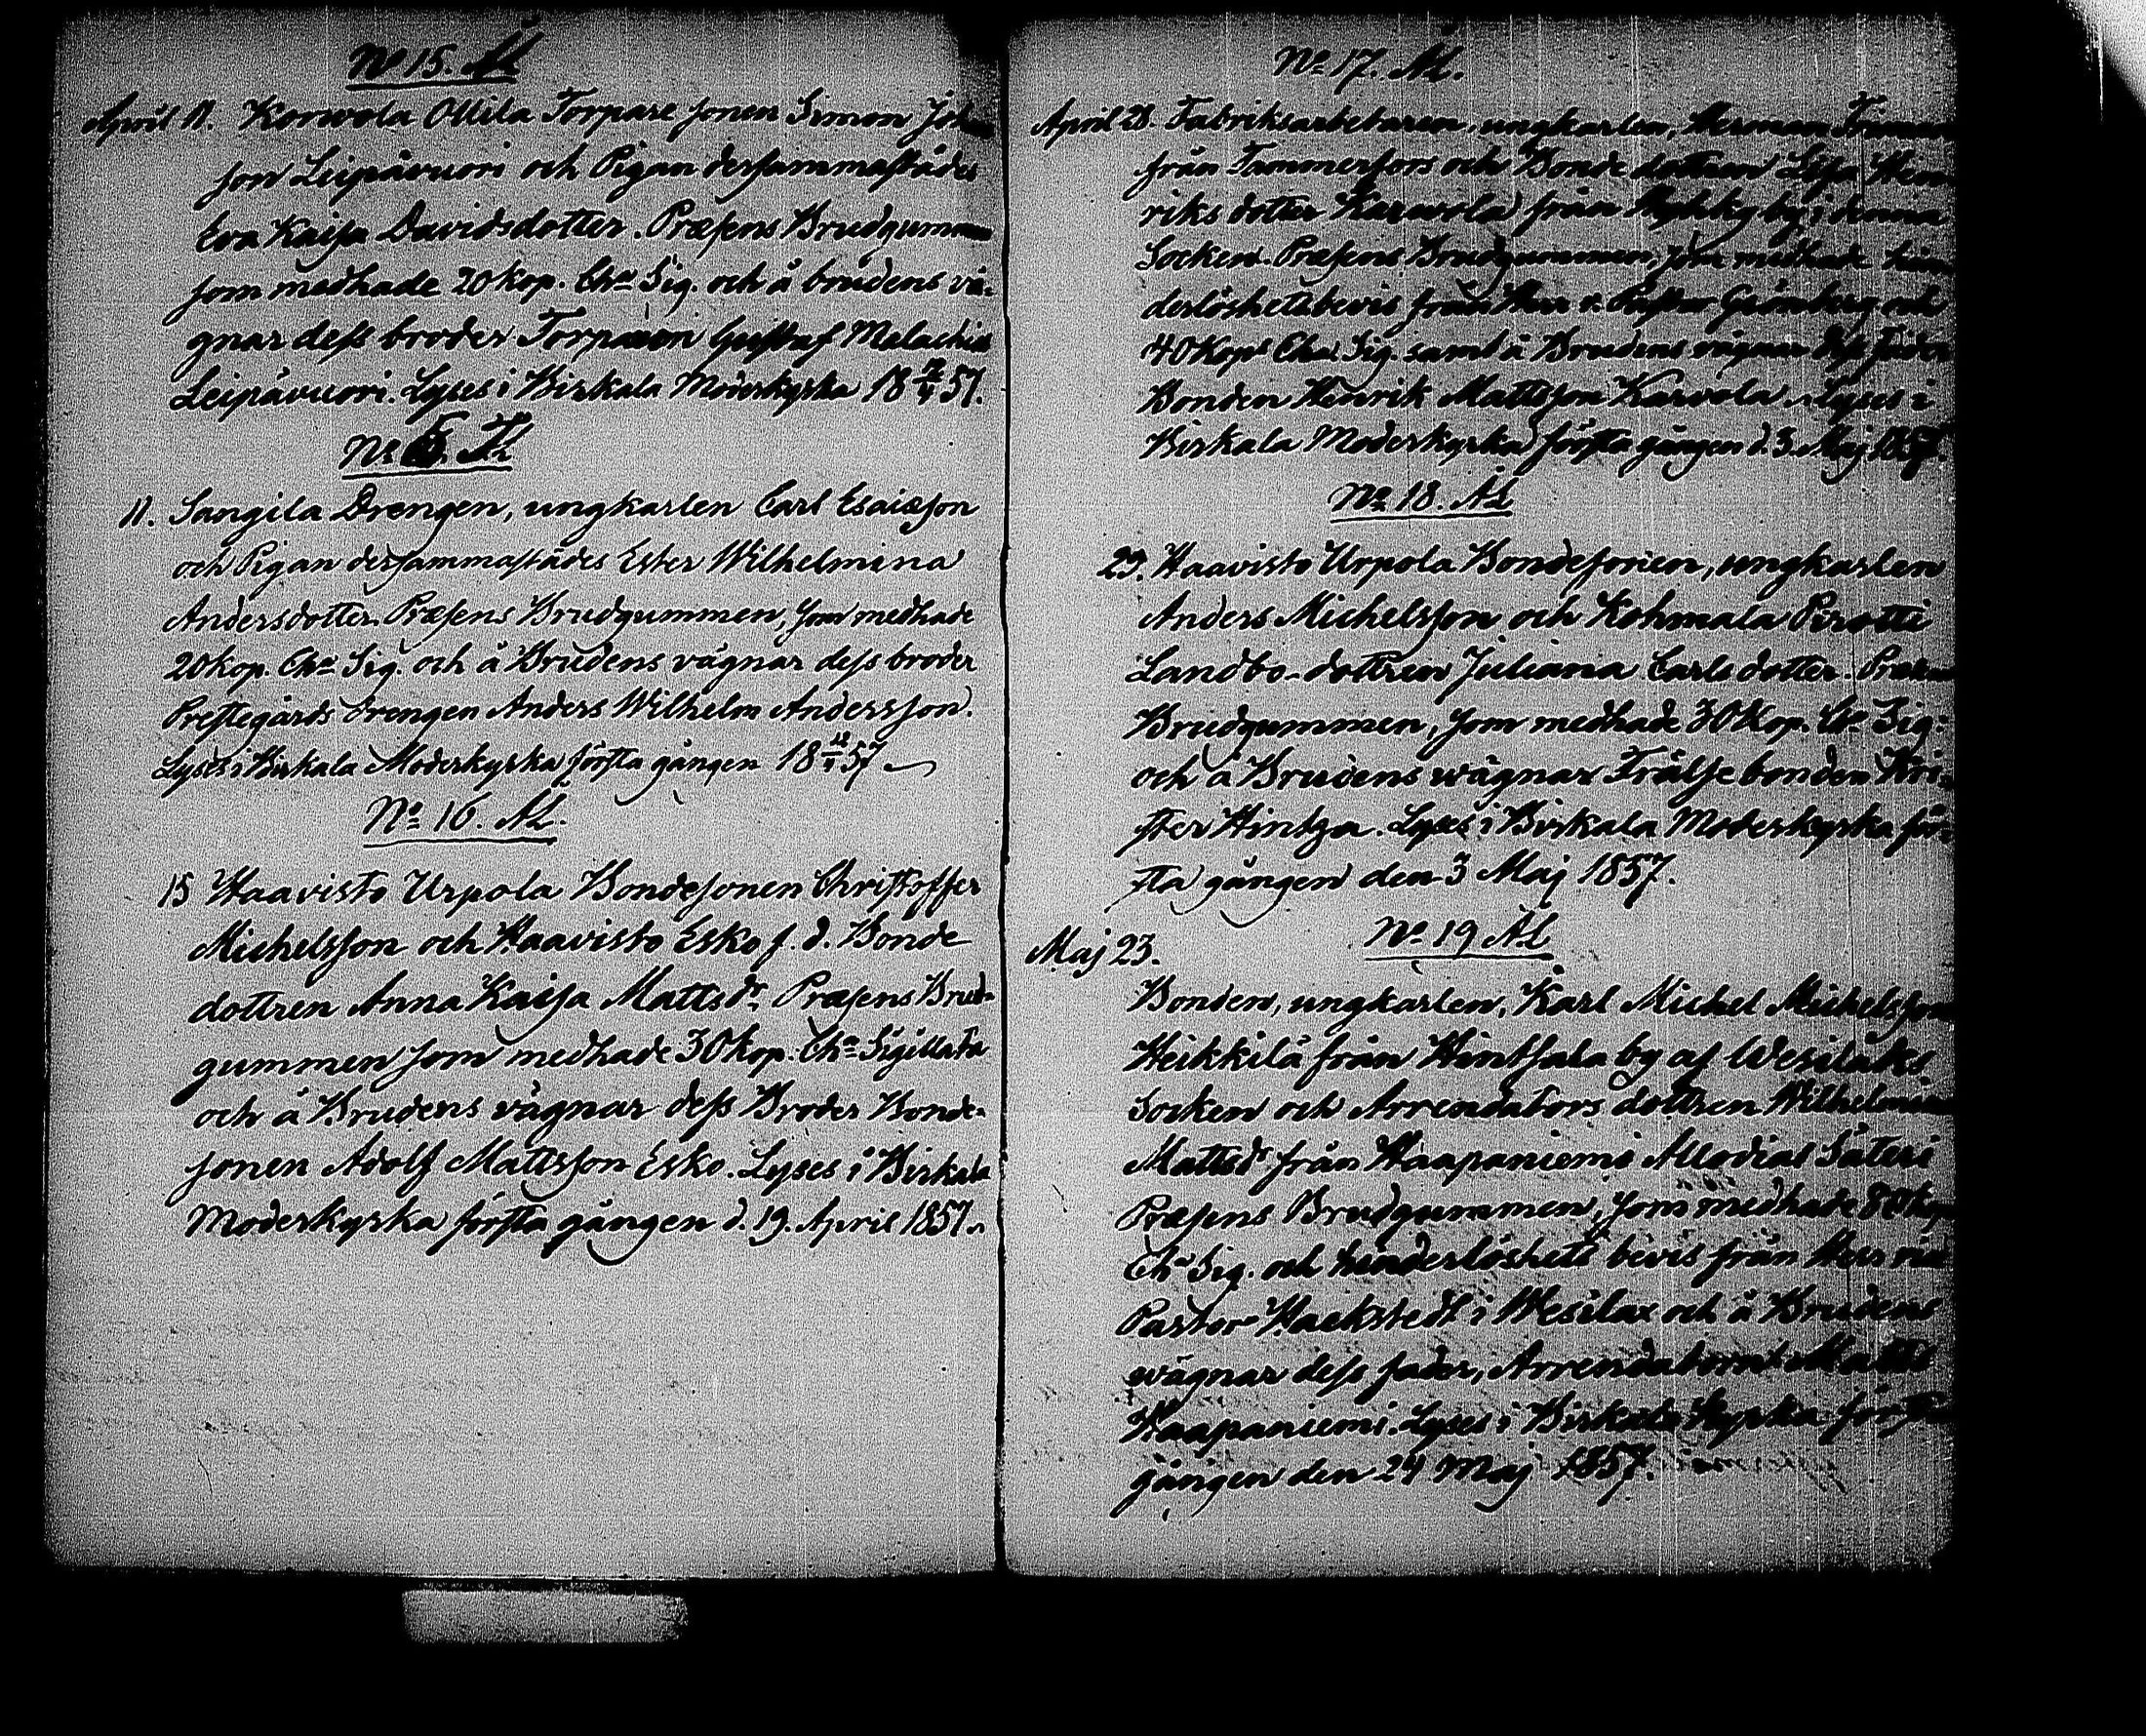 No 15. ÄL
April 11. Korwola Ollila Torpare sonen Simon Joh
son Leipävuori och Pigan dersammastädes
Eva Kaisa Davidsdotter. Præsens Brudgumen
som medhade 20 kop. Cha Sig. och å brudens vä-
gnar dess broder Torparen Gustaf Malachias
Leipävuori. Lyses i Birkala Moderkyrka 18 12/4 57.
No 5. TL
11. Sangila Drengen, ungkarlen Carl Esaiasson
och Pigan dersammastädes Ester Wilhelmina
Andersdotter. Præsens Brudgummen, som medhade
20 kop. Cha Sig. och å Brudens vägnar dess broder
Prestegårds drengen Anders Wilhelm Andersson.
Lyses i Birkala Moderkyrka första gången 18 12/4 57
No 16. ÄL.
15 Haavisto Urpola Bondesonen Christoffer
Michelsson och Haavisto Esko f. d. Bonde
dottren Anna Kaisa Mattsdr Præsens Brud-
gummen som medhade 30 kop. Cha Sigillata
och å Brudens vägnar dess Broder Bonde-
sonen Adolf Mattsson Esko. Lyses i Birkala
Moderkyrka första gången d. 19. April 1857.
No 17. ÄL.
April 28. Fabriksarbetaren, ungkarlen, Herman
från Tammerfors och Bonde dottren Lisa Hen
riks dotter Karwola från by i denna
Socken. Præsens Brudgummen, som medhade hin
derlöshetsbevis från Herr v. Pastor Grönberg och
40 Kop Cha Sig. samt å Brudens vägnar dess fader
Bonden Henrik Mattsson Karwola. Lyses i
Birkala Moderkyrka första gången d. 3. Maj 1857.
No 18. ÄL
29. Haavisto Urpola Bondesonen, ungkarlen
Anders Michelsson och Kohmala Pirotti
Landbo-dottren Juliana Carls dotter. Præsens
Brudgummen, som medhade 30 Kop. Cha Sig:
och å Brudens wägnar Frälse bonden Kri-
ster Hintza. Lyses i Birkala Moderkyrka för-
sta gången den 3 Maj 1857.
No 19 ÄL
Maj 23.
Bonden, ungkarlen, Karl Michel Michelsson
Heikkilä från Hintsala by af Wesilaks
Socken och Arrendators dottren Wilhelmina
Mattsdr från Haapaniemi Allodial Säteri
Præsens Brudgummen, som medhade 80 kop
Cha Sig. och hinderlöshets bevis från Herr
Pastor Hackstedt i Wesilax och å Brudens
wägnar dess fader, Arrendatorn Matts
Haapaniemi. Lyses i Birkala Kyrka första
gången den 24 Maj 1857.